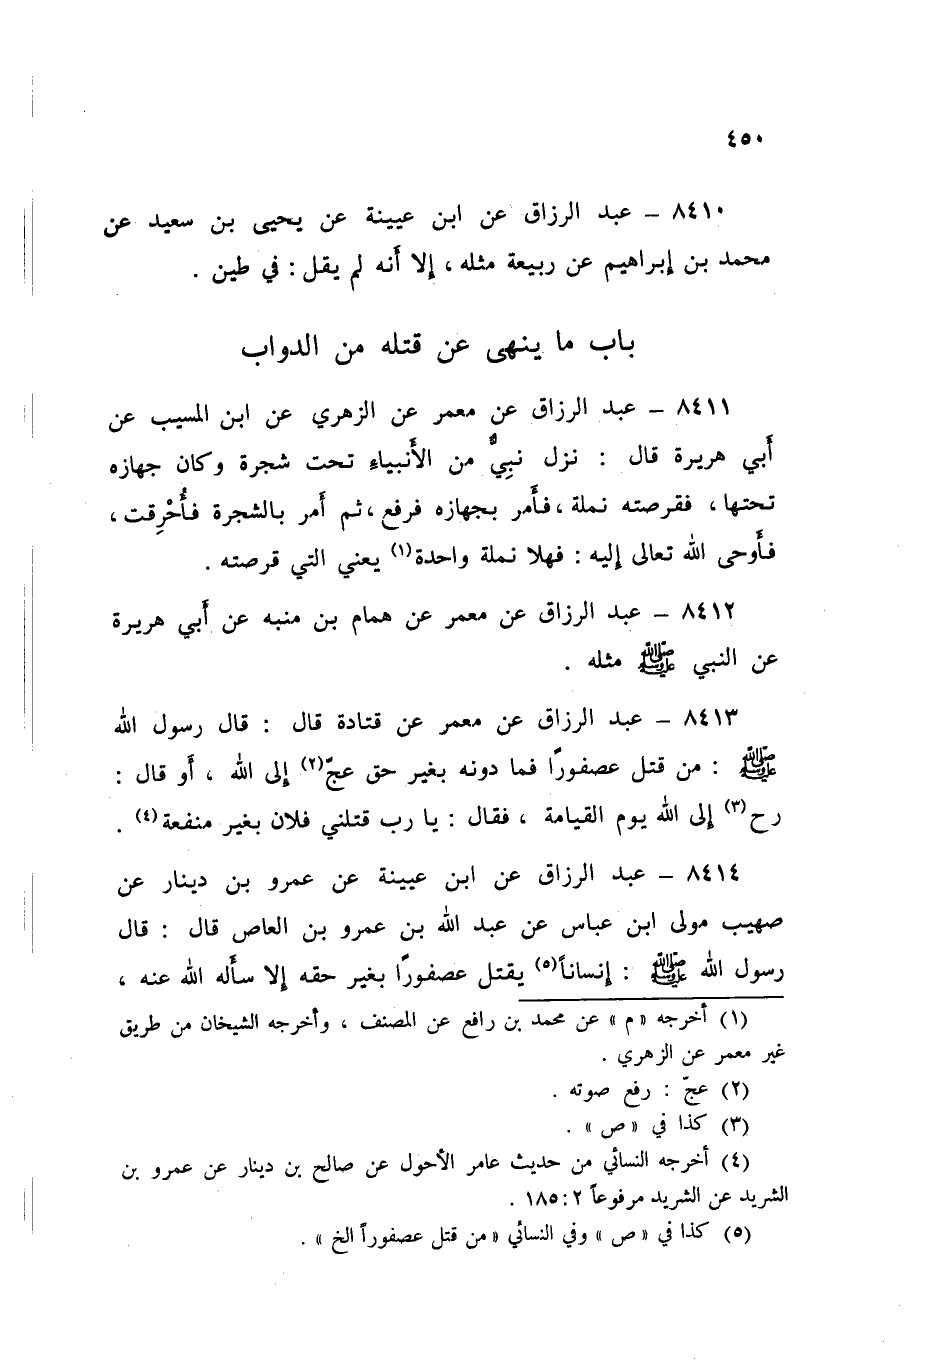 ٤٥٠
٨٤١٠ – عبد الرزاق عن ابن عيينة عن يحيى بن سعيد عن
محمد بن إبراهيم عن ربيعة مثله ، إلا أنه لم يقل : في طين .
باب ما ينهى عن قتله من الدواب
٨٤١١ – عبد الرزاق عن معمر عن الزهري عن ابن المسيب عن
أبي هريرة قال : نزل نبيٌّ من الأنبياء تحت شجرة وكان جهازه
تحتها ، فقرصته نملة ، فأمر بجهازه فرفع ، ثم أمر بالشجرة فأُحْرِقت ،
فأوحى الله تعالى إليه : فهلا نملة واحدة(١) يعني التي قرصته .
٨٤١٢ – عبد الرزاق عن معمر عن همام بن منبه عن أبي هريرة
عن النبي ﷺ مثله .
٨٤١٣ – عبد الرزاق عن معمر عن قتادة قال : قال رسول الله
ﷺ : من قتل عصفورًا فما دونه بغير حق عجّ(٢) إلى الله ، أو قال :
رح(٣) إلى الله يوم القيامة ، فقال : يا رب قتلني فلان بغير منفعة(٤) .
٨٤١٤ – عبد الرزاق عن ابن عيينة عن عمرو بن دينار عن
صهيب مولى ابن عباس عن عبد الله بن عمرو بن العاص قال : قال
رسول الله ﷺ : إنساناً(٥) يقتل عصفورًا بغير حقه إلا سأله الله عنه ،
(١) أخرجه «م» عن محمد بن رافع عن المصنف ، وأخرجه الشيخان من طريق
غير معمر عن الزهري .
(٢) عجّ : رفع صوته .
(٣) كذا في «ص» .
(٤) أخرجه النسائي من حديث عامر الأحول عن صالح بن دينار عن عمرو بن
الشريد عن الشريد مرفوعاً ٢ : ١٨٥ .
(٥) كذا في «ص» وفي النسائي «من قتل عصفوراً الخ» .